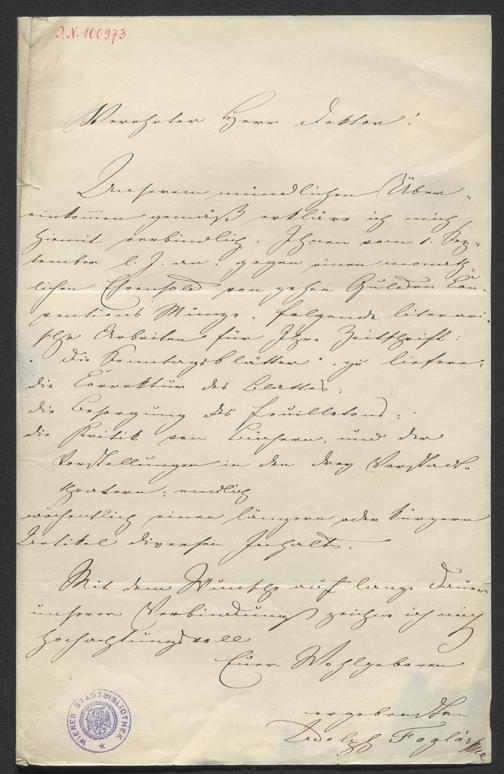 J.N. 100973
Verehrter Herr Doktor!
Unserem mündlichen Über-
einkommen gemäß erkläre ich mich
hiemit verbindlich, Ihnen vom 1. Sep-
tember l. J. an, gegen einen monat-
lichen Ehrensold von zehen Gulden Con-
ventions Münze, folgende literari-
sche Arbeiten für Ihre Zeitschrift:
"Die Sonntagsblätter" zu liefern:
die Correktur des Blattes;
die Besorgung des Feuilletons;
die Kritik von Büchern, und der
Vorstellungen in den drey Vorstadt-
theatern; endlich
wöchentlich einen längern oder kürzern
Artikel diversen Inhalts.
Mit dem Wunsche auf lange Dauer
unserer Verbindung zeichne ich mich
hochachtungsvoll
Euer Wohlgeboren
ergebenster
Adolph Foglár
WIENER STADTBIBLIOTHEK